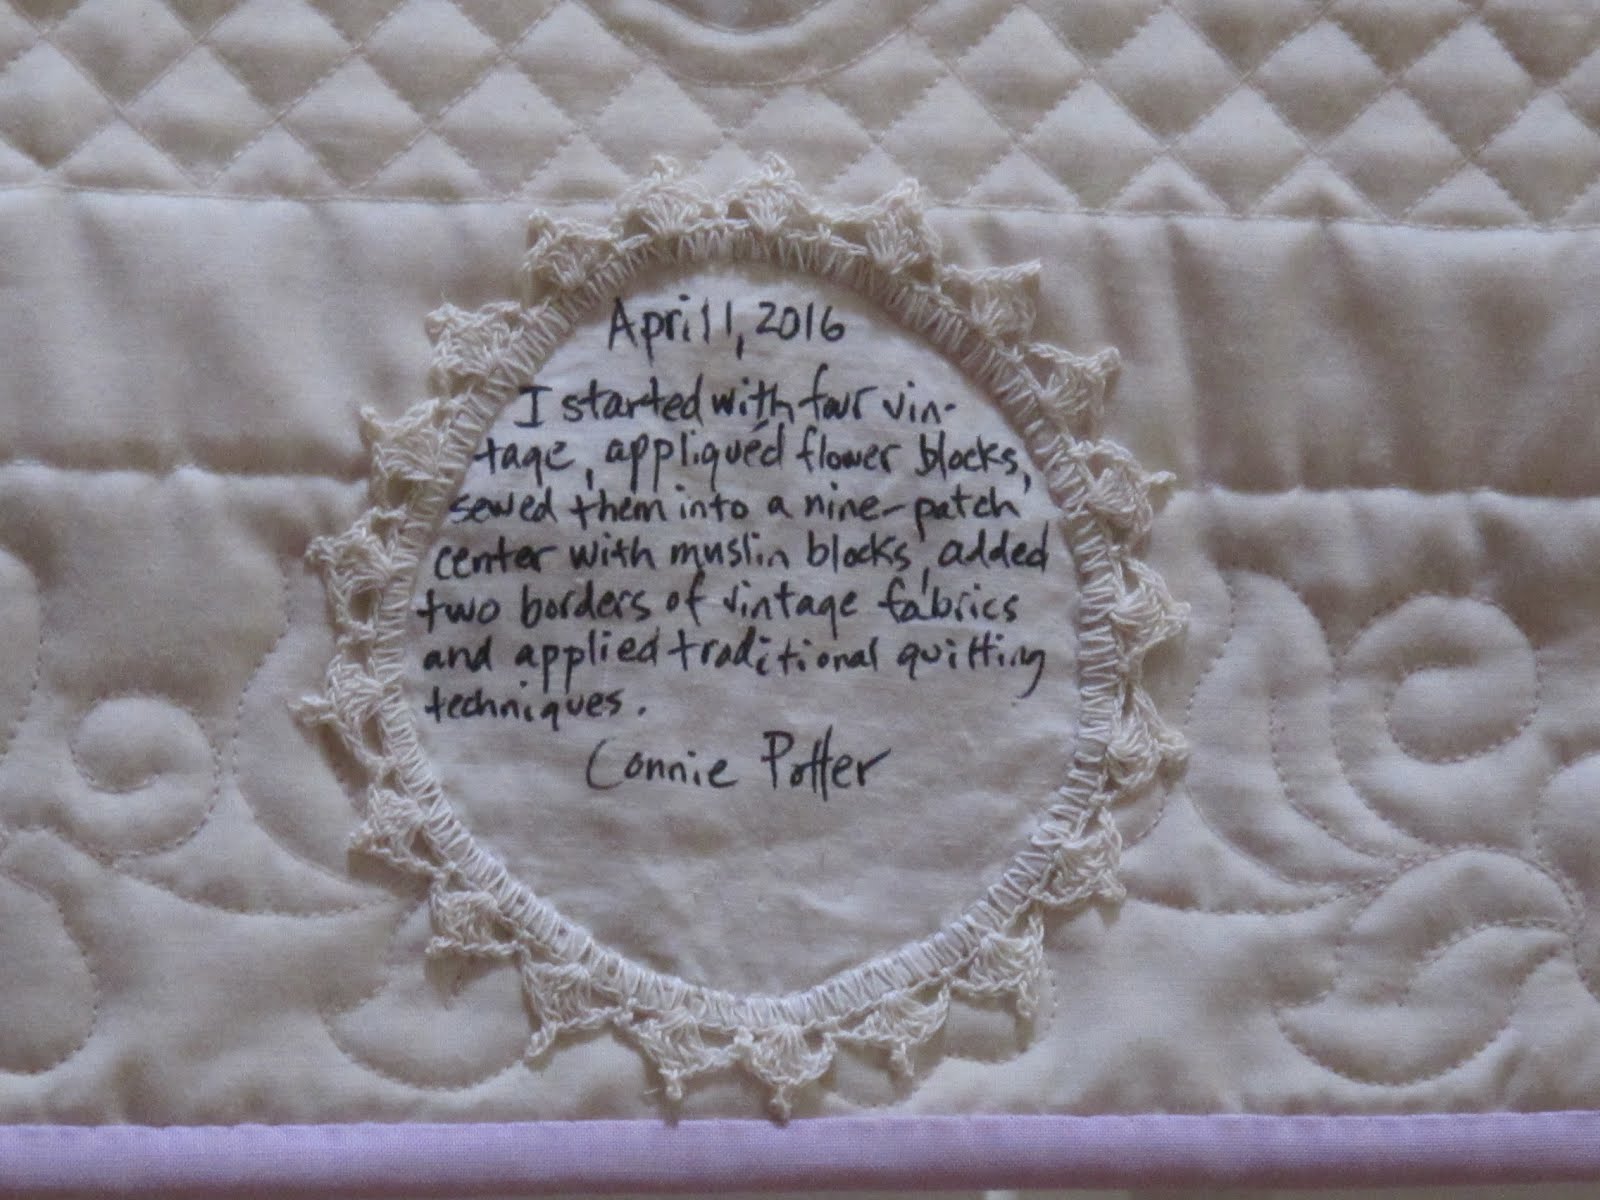 April 1, 2016
I started with four vin-
tage, appliquéd flower blocks,
sewed them into a nine-patch
center with muslin blocks, added
two borders of vintage fabrics
and applied traditional quilting
techniques.
Connie Potter